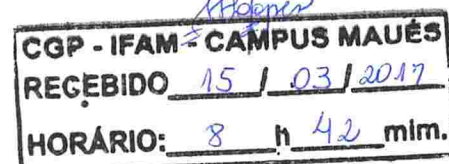 CGP - IFAM - CAMPUS MAUÉS
RECEBIDO 15 / 03 / 2017
HORÁRIO: 8 h 42 mim.